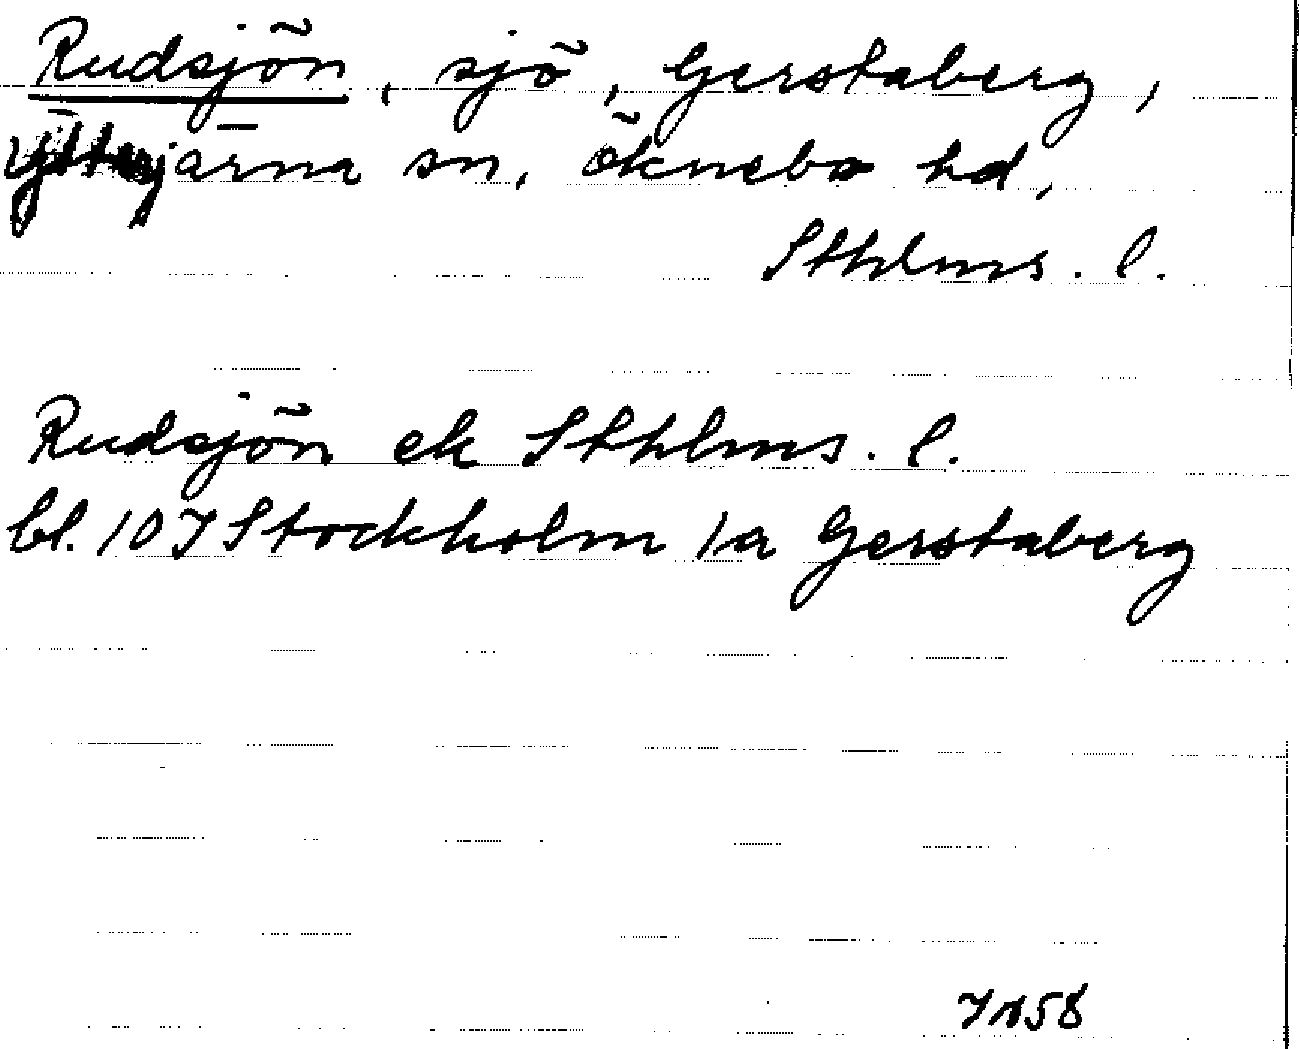 Rudsjön, sjö, Gerstaberg,
Ytterjärna sn, Öknebo hd,
Sthlms. l.
Rudsjön ek Sthlms. l.
bl. 10 I Stockholm 1a Gerstaberg